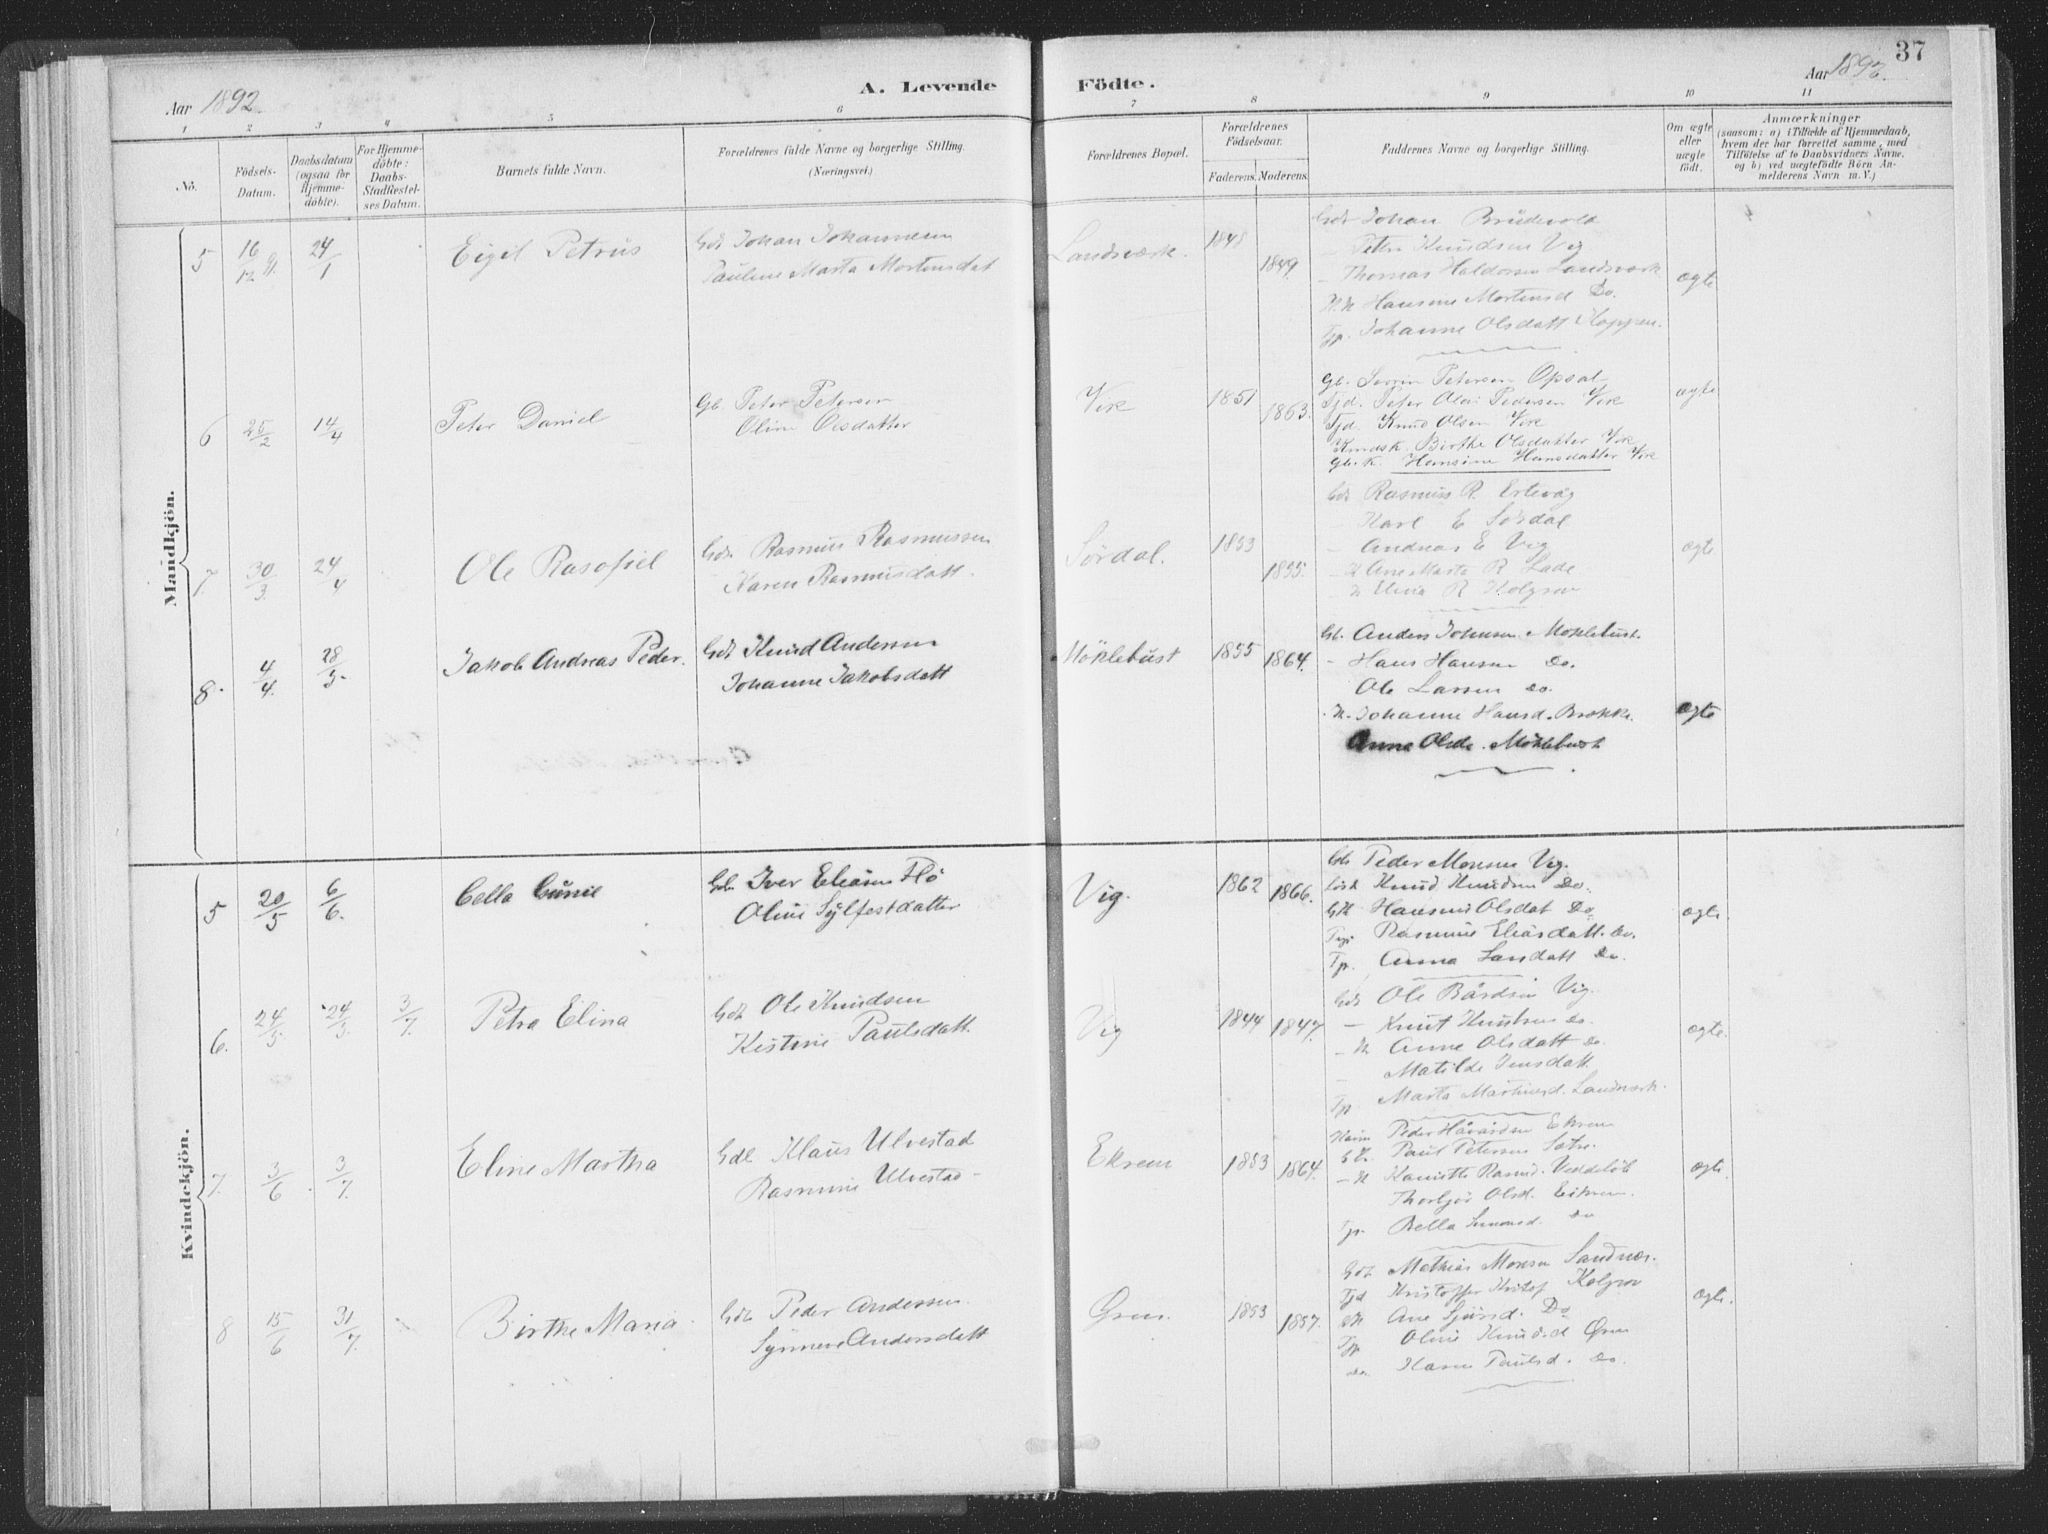 37
Aar 1892
A. Levende
Födte.
Aar 1892.
1 2 3 4 5 6 7 8 9 10 11
No.
Födsels-
Datum.
Daabsdatum
(ogsaa for
Hjemme-
döbte).
For Hjemme-
döbte:
Daabs-
Stadfæstel-
ses Datum.
Barnets fulde Navn.
Forældrenes fulde Navne og borgerlige Stilling.
(Næringsvei.)
Forældrenes Bopæl.
Forældrenes
Födselsaar.
Faderens. Moderens.
Faddernes Navne og borgerlige Stilling.
Om ægte
eller
uægte
födt.
Anmærkninger
(saasom: a) i Tilfælde af Hjemmedaab,
hvem der har forrettet samme, med
Tilföielse af to Daabsvidners Navne.
og b) ved uegtefödte Börn An-
melderens Navn m. V.)
Mandkjön.
5 16/12 91. 24/1 Eigil Petrus
Gdr Johan Johannesen
Pauline Marta Mortensdat
Landsværk. 1848 1849.
Gdr Johan Brudevold
- Peter Knudsen Vig
- Thomas Haldorsen Landsværk
Hansine Mortensd Do.
Tp. Johanne Olsdatt Kloppen.
ægte
6 25/2 14/4 Peter Daniel
Gb. Peter Petersen
Oline Olsdatter
Vik 1851 1863.
Gb. Severin Petersen Opsal
Tjd. Peter Olai Pedersen Vik
Tjd. Knud Olsen Vik
Birthe Olsdatter Vik
Gb.K. Hansine Hansdatter Vik
ægte
7. 30/3. 24/4 Ole Rasofiel
Gdr. Rasmus Rasmussen
Karen Rasmusdatt.
Sördal. 1853 1855.
Gdr Rasmus R. Ertevåg
Karl E Sördal
- Andreas E Vig
- K Ane Marta R Lade
- K Elina R Kolgrov
ægte
8. 4/4. 28/5. Jakob Andreas Peder.
Gdr Knud Andersen
Johanne Jakobsdatt
Möklebust 1855 1864.
Gb. Anders Johnsen Möklebust.
- Hans Hansen Do.
Ole Larsen do.
K. Johanne Hansd. Brekke.
Anne Olsdr. Möklebust
ægte
Kvindekjön.
5 20/5 6/6. Cella Gurie
Gb. Iver Eliasen Flö
Oline Sylfestdatter
Vig. 1862 1866.
Gb Peder Monsen Vig.
Knud Knudsen Do.
GK Hansine Olsdat Do
Tp. Rasmine Eliasdatt. do.
Tp. Anna Larsdatt Do.
ægte.
6. 24/5 24/5. 3/7. Petra Elina
Gdr Ole Knudsen
Kistine Paulsdatt.
Vig 1844 1847.
Gdr Ole Bårdsen Vig.
- Knut Knutsen do.
- K Anne Olsdatt Do
Matilde Jensdatt.
Tp Marta Martinusd. Landsværk.
ægte.
7. 3/6. 3/7. Eline Martha
Gdl Klaus Ulvestad
Rasmine Ulvestad
Ekrem 1853 1864.
Peder Håvardsen Ekrem
Paul Petersen Sætre.
- K Rasmd. Veddelöb
Thorbjör Olsd. Eikrem.
Tp. Bella Simonsd. do
ægte.
8 15/6 31/7. Birthe Maria
Gdr Peder Andersen.
Synneve Andersdatt
Ören. 1853 1857.
Gdr Mathias Monsen Sandnæs.
Tjd Kristoffer Kristof Kolgrov
GK Ane Sjursd. Do
Tp Oline Knudsd Ören
do Karen Paulsd. Do.
ægte.